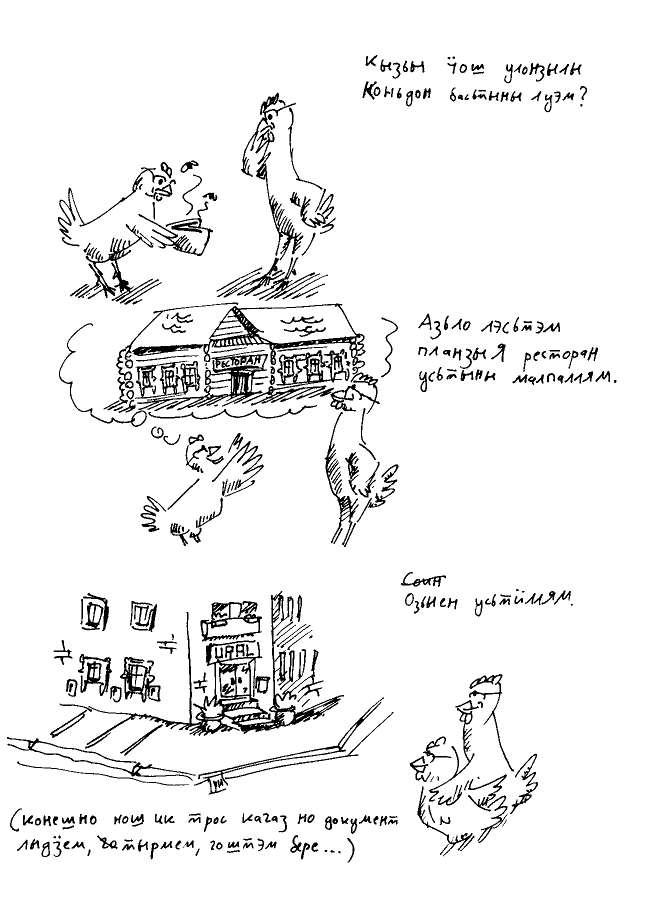 Кызьы ӵош улонзылы
Коньдон басьтыны луэм?
Азьло лэсьтэм
планзыя ресторан
усьтыны малпаллям.
РЕСТОРАН
Соин
Озьыен усьтӥллям.
URAL
(Конешно нош ик трос кагаз но документ
лыдӟем, гоштэм бере...)